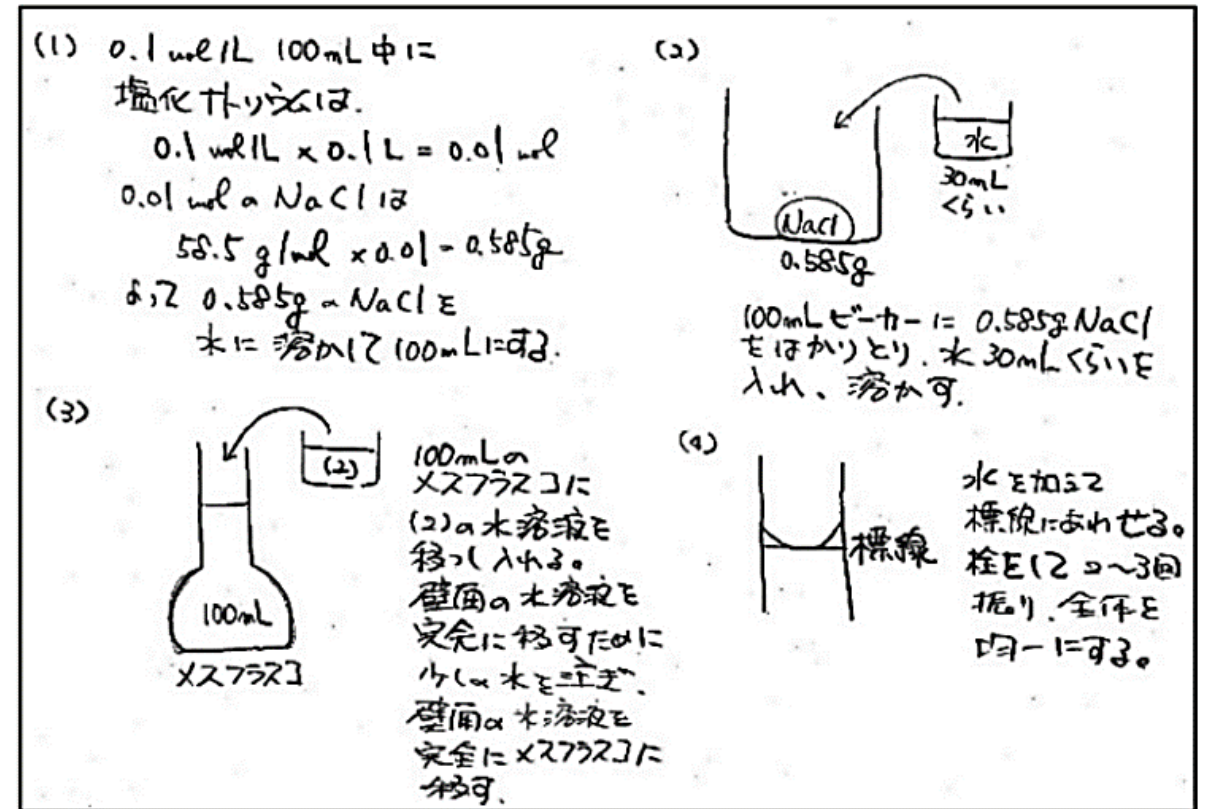 (1) 0.1 mol/L 100mL中に
塩化ナトリウムは.
0.1 mol/L × 0.1 L = 0.01 mol
0.01 molのNaClは
58.5 g/mol × 0.01 = 0.585g
よって 0.585gのNaClを
水に溶かして100mLにする.
(2)
水
30mL
くらい
NaCl
0.585g
100mLビーカーに 0.585g NaCl
をはかりとり. 水30mLくらいを
入れ、溶かす.
(3)
(2)
100mL
メスフラスコ
100mLの
メスフラスコに
(2)の水溶液を
移し入れる。
壁面の水溶液を
完全に移すために
少しの水を注ぎ、
壁面の水溶液を
完全にメスフラスコに
移す.
(4)
標線
水を加えて
標線にあわせる。
栓をして2〜3回
振り、全体を
均一にする。